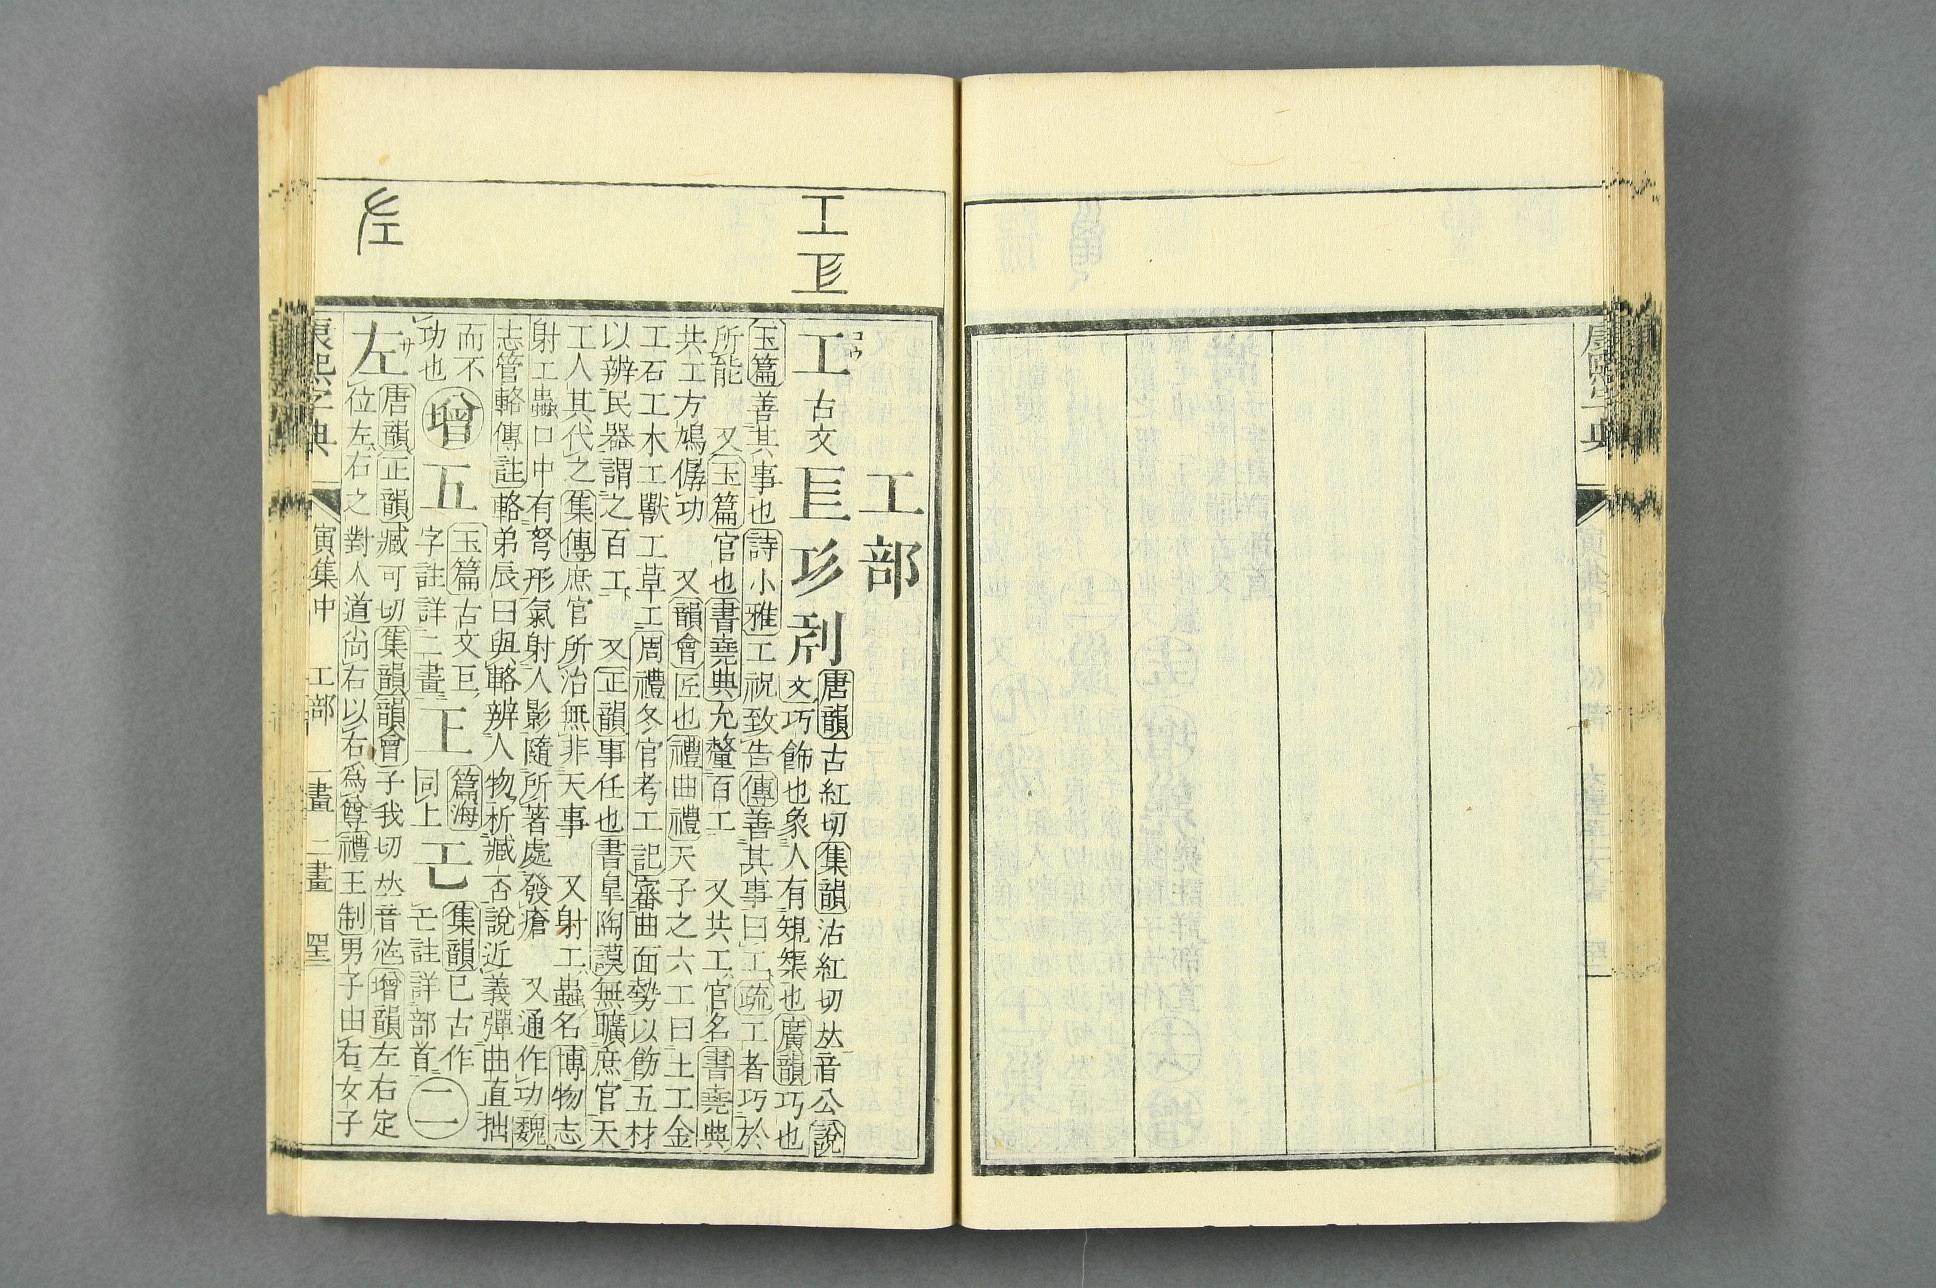 工部
工 古文 𢒄 㓚
唐韻古紅切集韻沽紅切𠀤音公說
文巧飾也象人有規榘也廣韻巧也
玉篇善其事也詩小雅工祝致告傳善其事曰工疏工者巧於
所能 又玉篇官也書堯典允釐百工 又共工官名書堯典
共工方鳩僝功 又韻會匠也禮曲禮天子之六工曰土工金
工石工木工獸工草工周禮冬官考工記審曲面勢以飭五材
以辨民器謂之百工 又正韻事任也書皐陶謨無曠庶官天
工人其代之集傳庶官所治無非天事 又射工蟲名博物志
射工蟲口中有弩形氣射人影隨所著處發瘡 又通作功魏
志管輅傳註輅弟辰曰與輅辨人物析臧否說近義彈曲直拙
而不
功也 增 玉篇古文巨
字註詳二畫 篇海
同上 集韻巳古作
註詳部首 二
左 唐韻正韻臧可切集韻韻會子我切𠀤音 增韻左右定
位左右之對人道尙右以右爲尊禮王制男子由右女子
康熙字典 寅集中 工部 一畫 二畫
康熙字典 寅集中 巛部